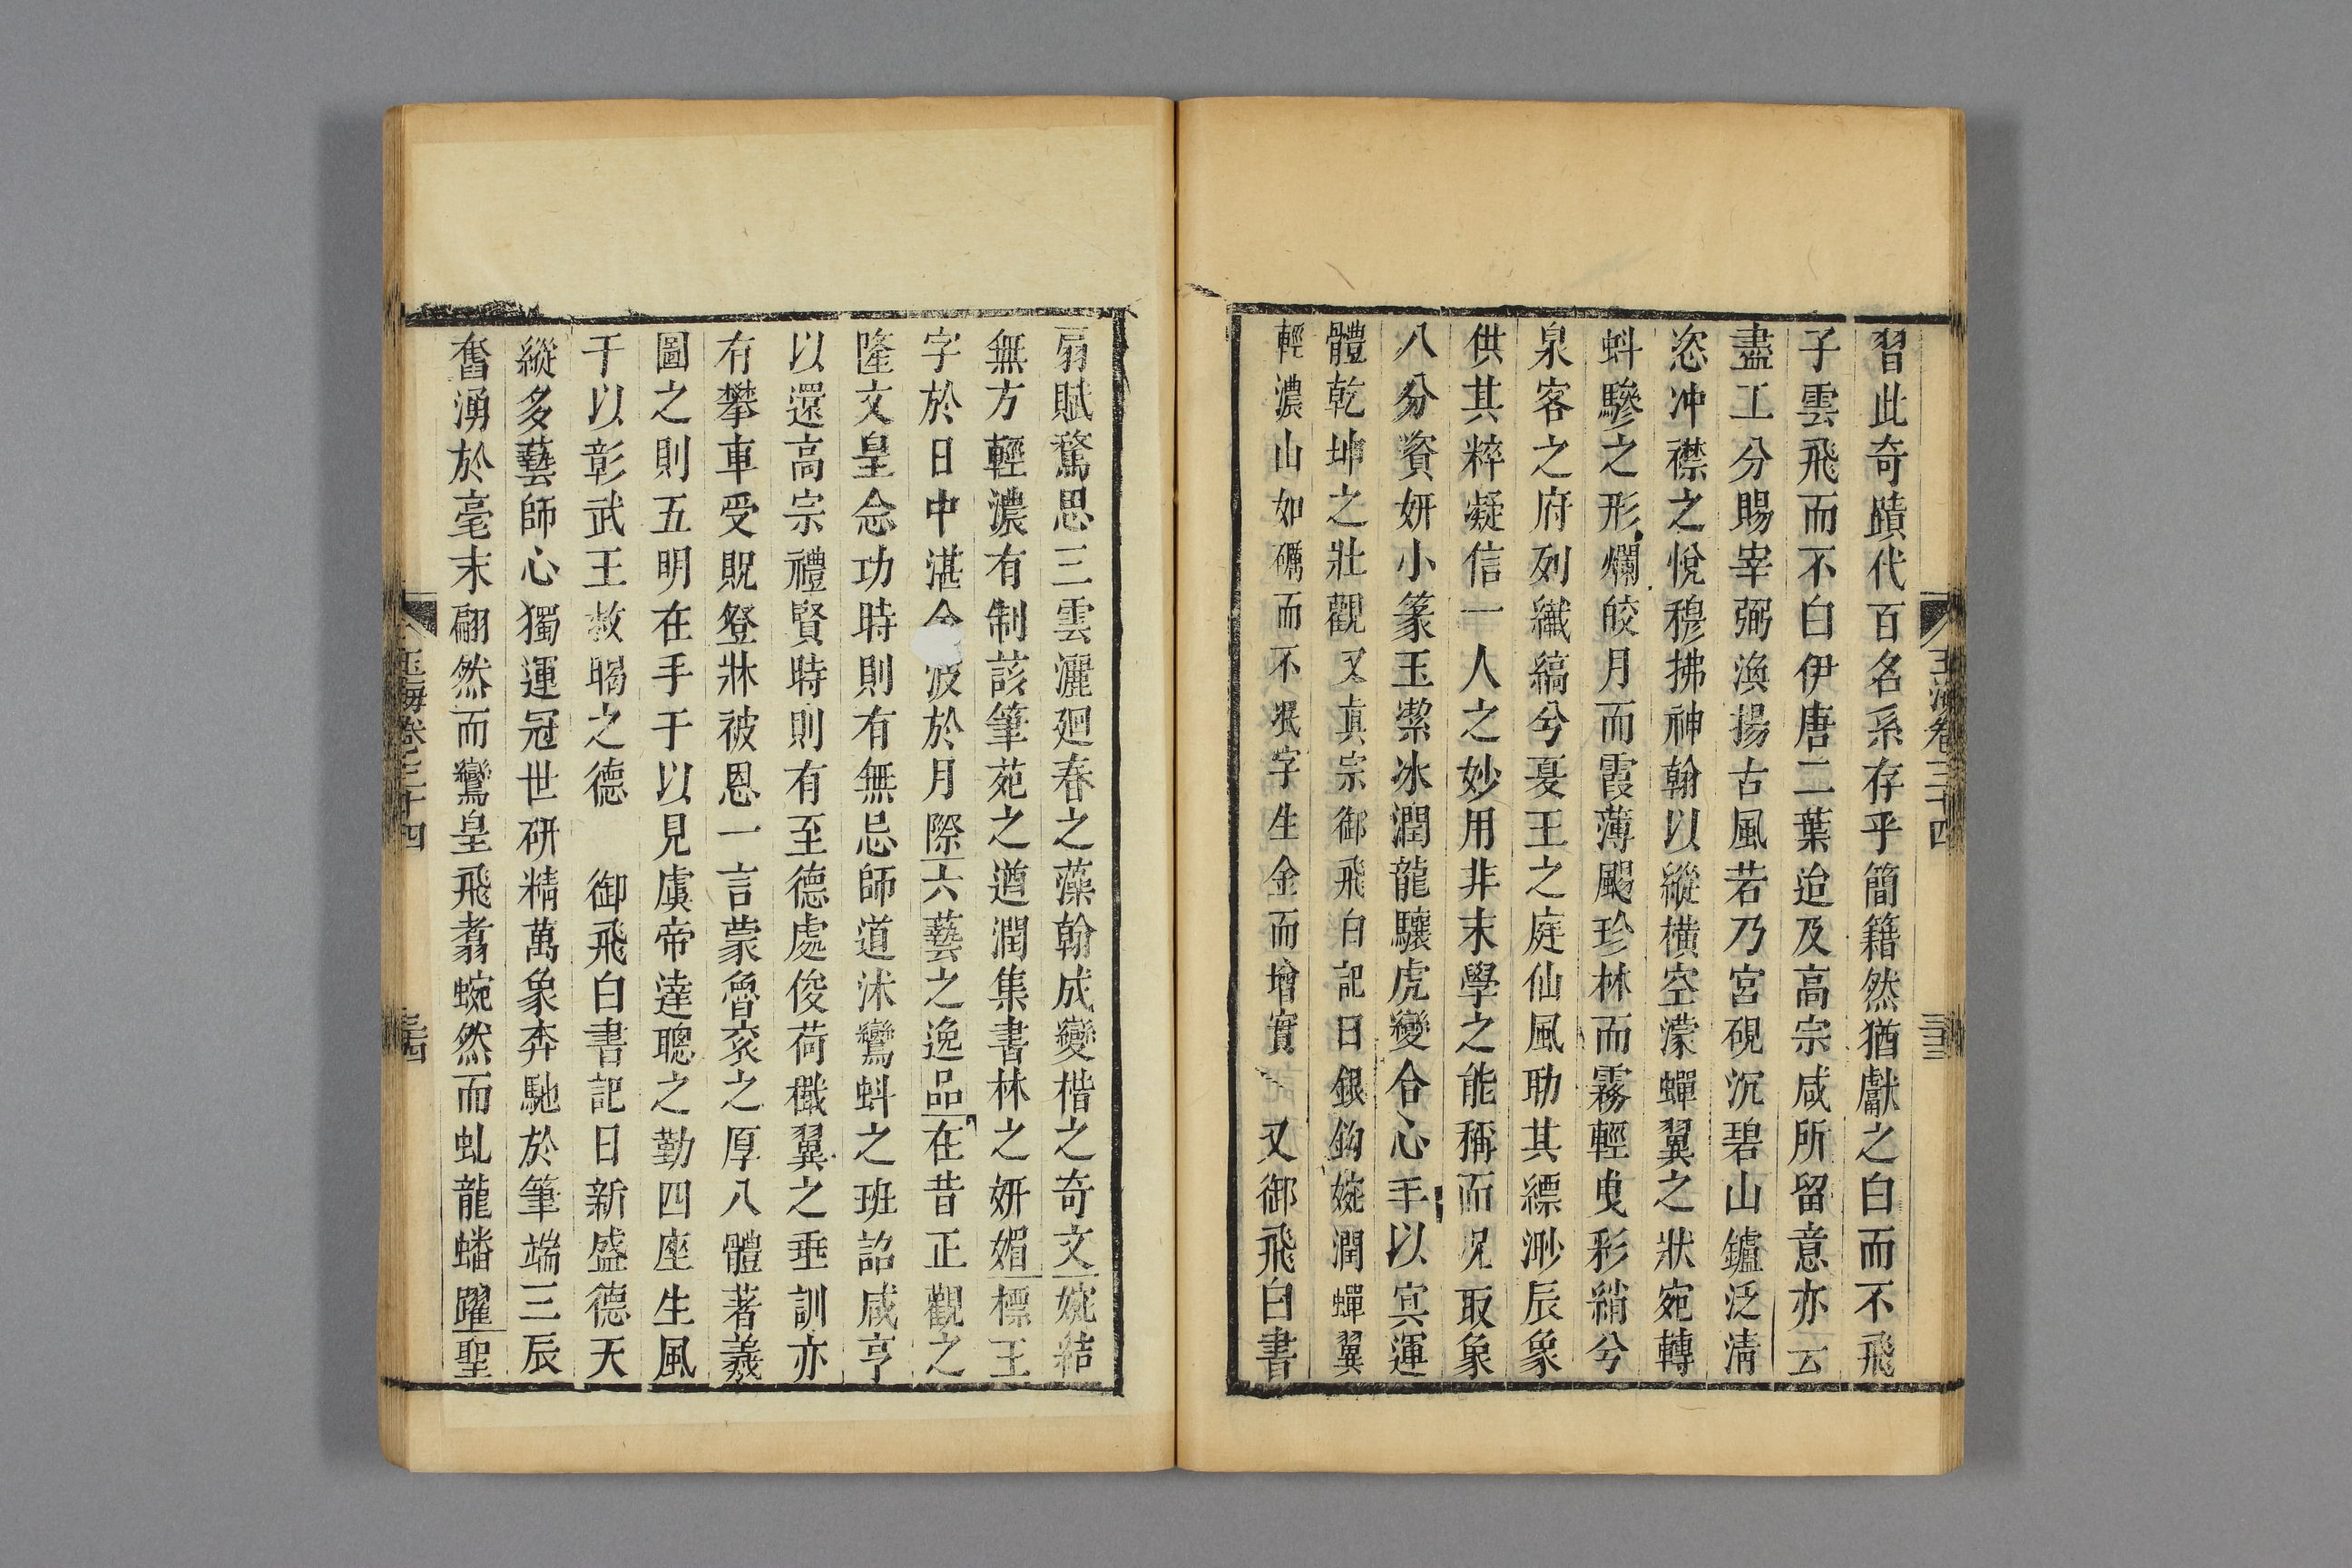 玉海卷三十四
三十三
習此奇蹟代百名系存乎簡籍然猶獻之白而不飛
子雲飛而不白伊唐二葉迨及高宗咸所留意亦云
盡工分賜宰弼渙揚古風若乃宮硯沉碧山鑪泛淸
恣冲襟之悅穆拂神翰以縱橫空濛蟬翼之狀宛轉
蚪驂之形爛皎月而霞薄颺珍林而霧輕曳彩綃兮
泉客之府列纖縞兮戛王之庭仙風助其縹渺辰象
供其粹凝信一人之妙用非末學之能稱而況取象
八分資妍小篆玉潔冰潤龍驤虎變合心手以冥運
體乾坤之壯觀又真宗御飛白記曰銀鈎婉潤蟬翼
輕濃山如礪而不泯字生金而增實又御飛白書
扇賦騖思三雲灑廻春之藻翰成變楷之奇文婉結
無方輕濃有制該筆苑之遒潤集書林之妍媚標王
字於日中湛金波於月際六藝之逸品在昔正觀之
隆文皇念功時則有無忌師道沐鸞蚪之班詔咸亨
以還高宗禮賢時則有至德處俊荷檝翼之垂訓亦
有攀車受貺登牀被恩一言蒙魯衮之厚八體著羲
圖之則五明在手于以見虞帝達聰之勤四座生風
干以彰武王救暍之德 御飛白書記曰新盛德天
縱多藝師心獨運冠世研精萬象奔馳於筆端三辰
奮湧於毫末翩然而鸞皇飛翥蜿然而虬龍蟠躍聖
玉海卷之三十四
三十四